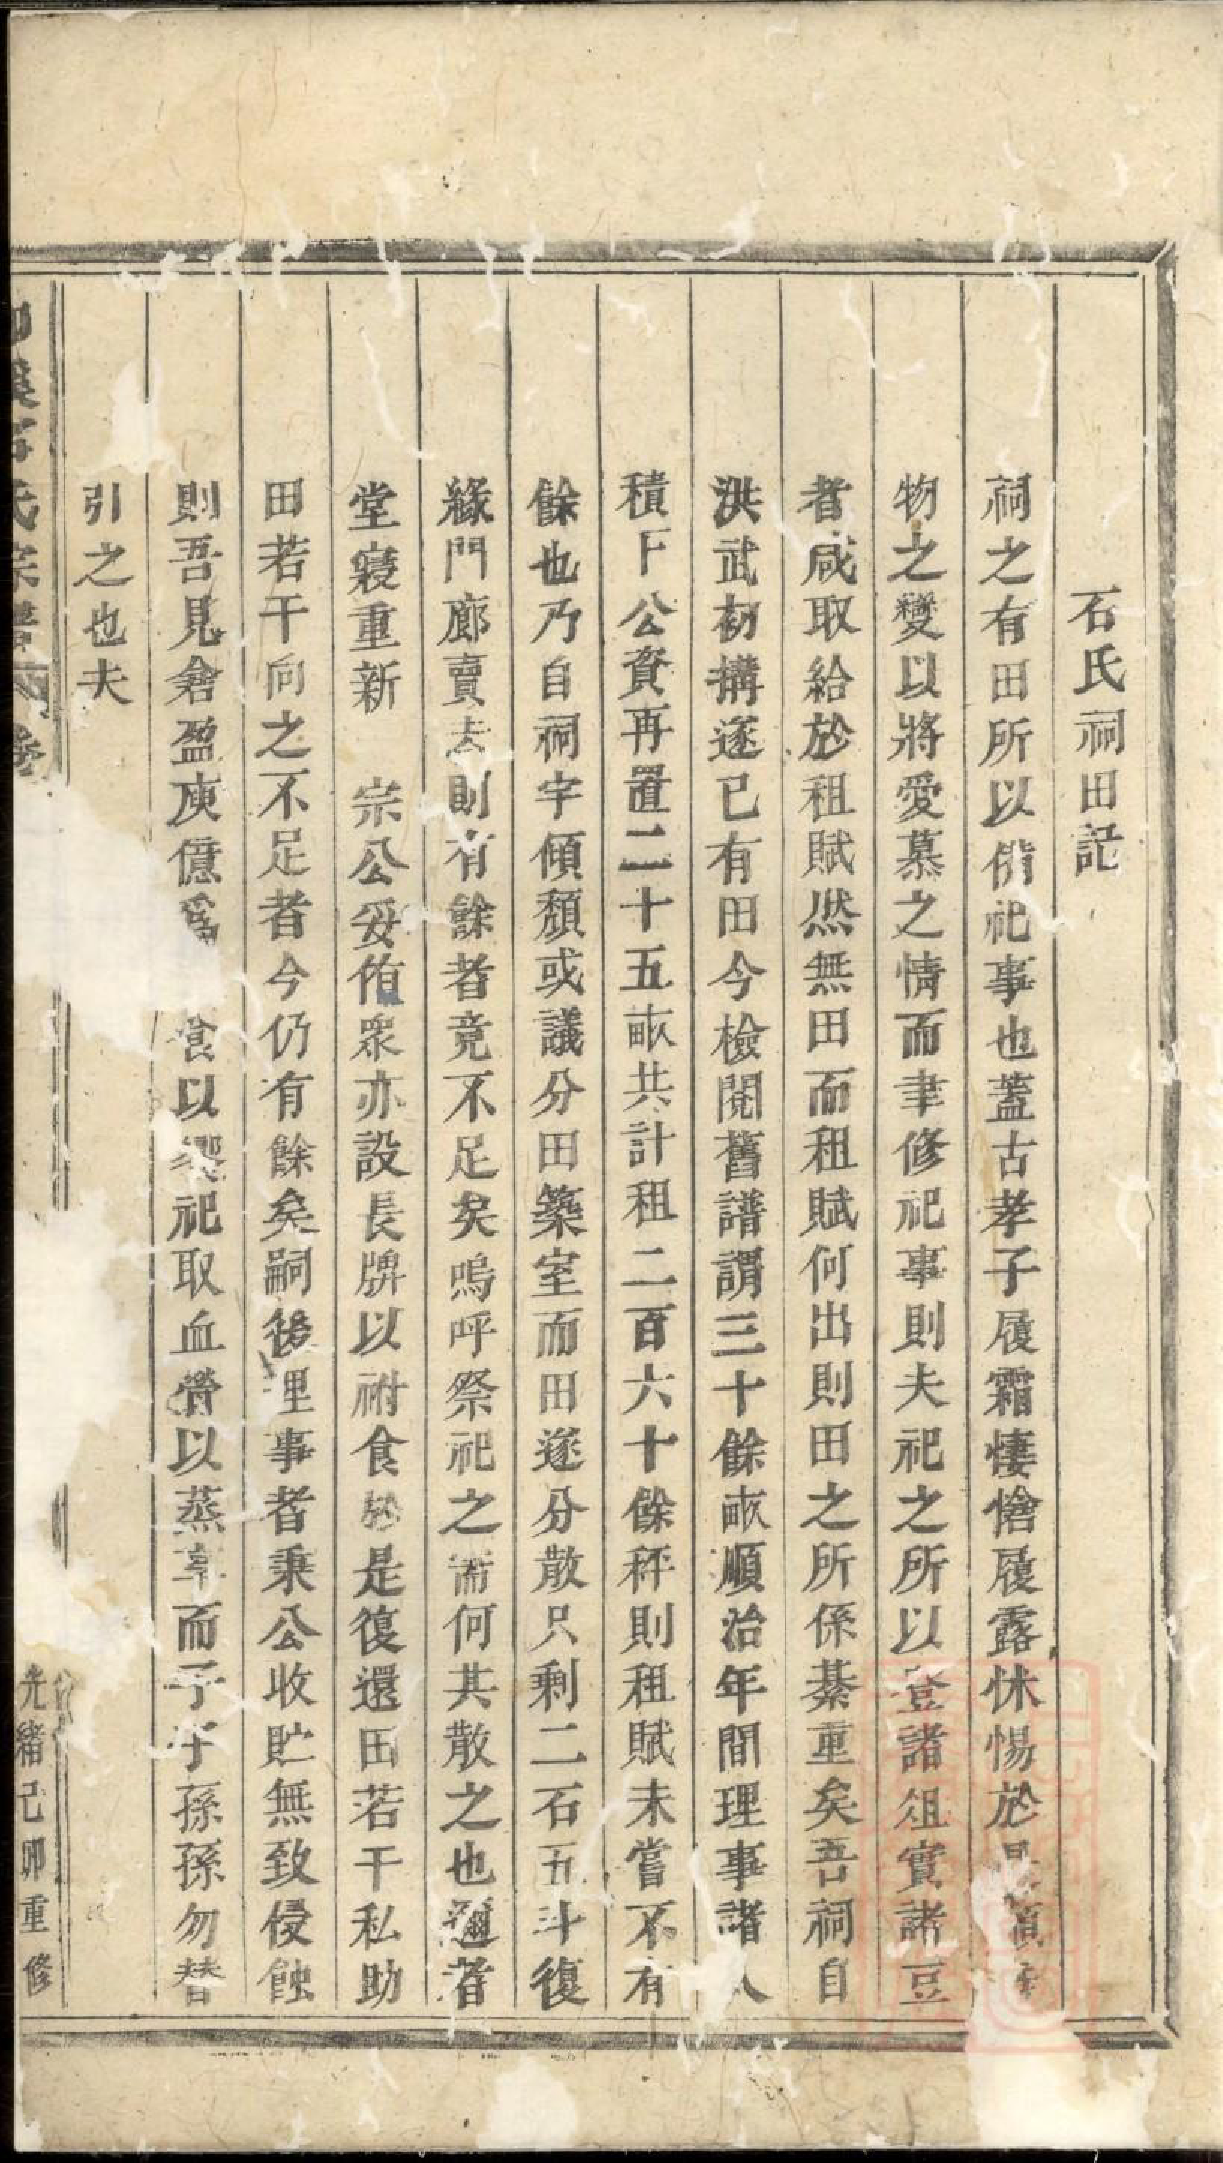 石氏祠田記
祠之有田所以備祀事也蓋古孝子履霜悽愴履露怵惕於是
物之變以將愛慕之情而聿修祀事則夫祀之所以登諸俎實諸豆
者咸取給於租賦然無田而租賦何出則田之所係綦重矣吾祠自
洪武初搆遂已有田今檢閱舊譜謂三十餘畝順治年間理事諸人
積下公資再置二十五畝共計租二百六十餘秤則租賦未嘗不有
餘也乃自祠宇傾頹或議分田築室而田遂分散只剩二石五斗復
緣門廊賣去則有餘者竟不足矣嗚呼祭祀之需何其散之也邇者
堂寢重新 宗公妥侑眾亦設長牌以祔食於是復還田若干私助
田若干向之不足者今仍有餘矣嗣後理事者秉公收貯無致侵蝕
則吾見倉盈庾億為食以饗祀取血膋以蒸享而子子孫孫勿替
引之也夫
氏宗譜 卷
光緒己卯重修